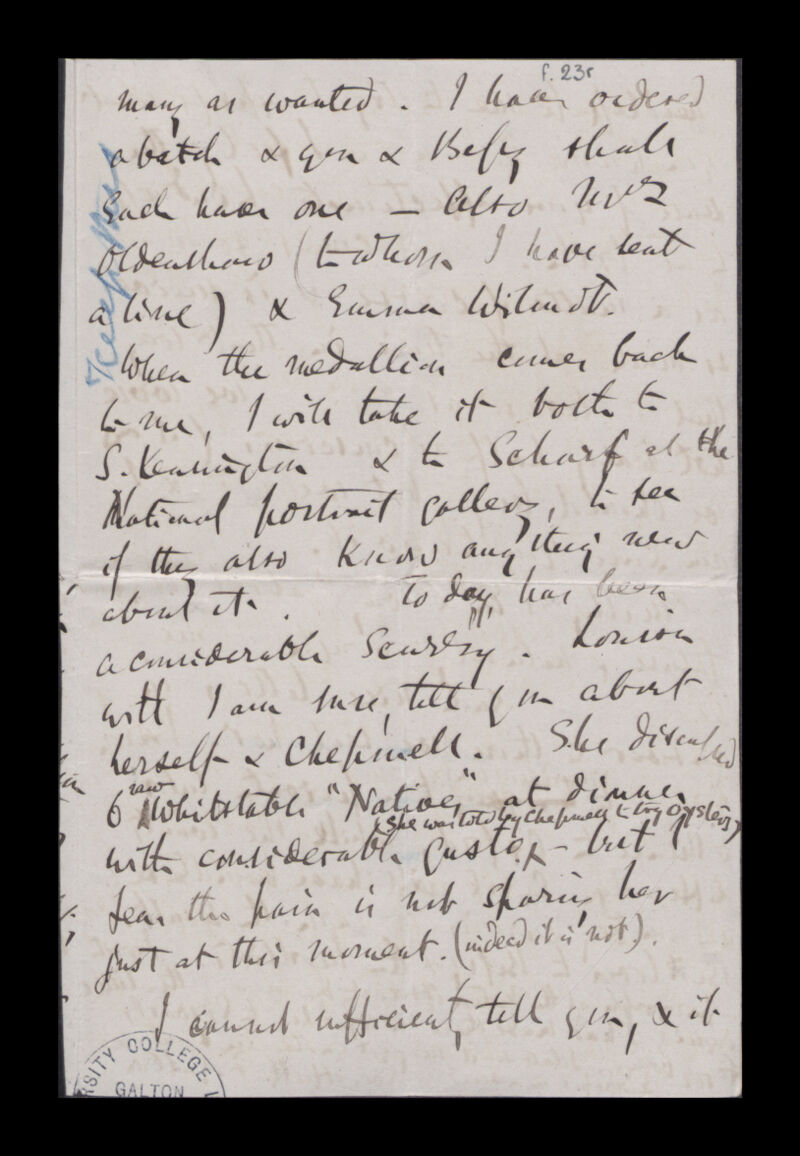 f. 23r
many as wanted. I have ordered
a batch & you & Bessy shall
each have one — Also Mrs
Oldenshaw (to whom I have sent
a line) & Emma Wilmot.
When the medallion comes back
to me, I will take it both to
S. Kensington & to Scharf at the
National portrait gallery, to see
if they also know anything new
about it. To day has been
a considerable . Louisa
will I am sure, tell you about
herself & Chepmell. She discussed
6 raw Whitstable "Natives" at dinner
(she was told by Chepmell to try oysters)
with considerable gusto, – but I
fear the pain is not sparing her
just at this moment. (indeed it is not).
I cannot sufficiently tell you, & it
Keep this
RSITY COLLEGE L
GALTON